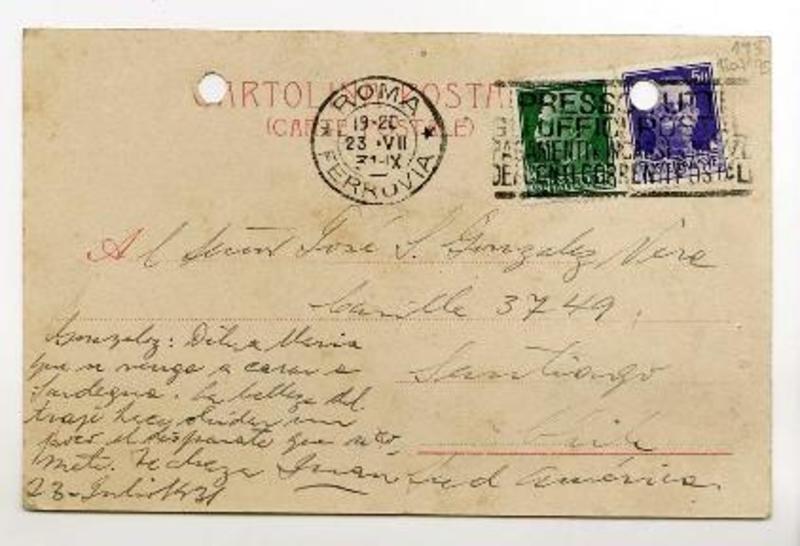 CARTOLINA POSTA
(CARTE POSTALE)
ROMA
19-20
23·VII
31·IX
FERROVIA
PRESSO
UFFICI POSTAL
CORRENTI POSTALI
50
Al Señor José S. Gonzalez Vera
Casilla 3749.
Santiago
Chile
Sud América.
Gonzalez: Dile a Maria
que se venga a casar a
Sardegna. La belleza del
traje hace olvidar un
poco el disparate que se co
mete.
23-Julio 1931